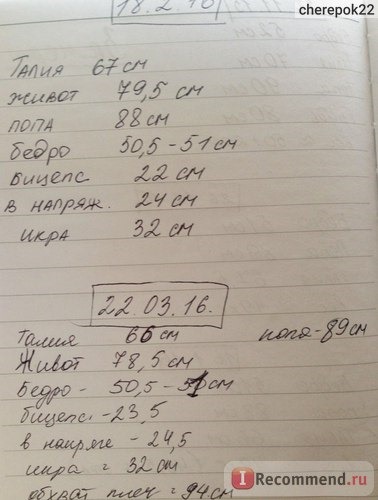 cherepok22
18.2.16
Талия 67 см
живот 79,5 см
попа 88 см
бедро 50,5 - 51 см
бицепс 22 см
в напряж. 24 см
икра 32 см
22.03.16.
Талия 66 см попа - 89 см
Живот 78,5 см
Бедро - 50,5 - 51 см
бицепс - 23,5
в напряге - 24,5
икра = 32 см
обхват плеч = 94 см
I Recommend.ru